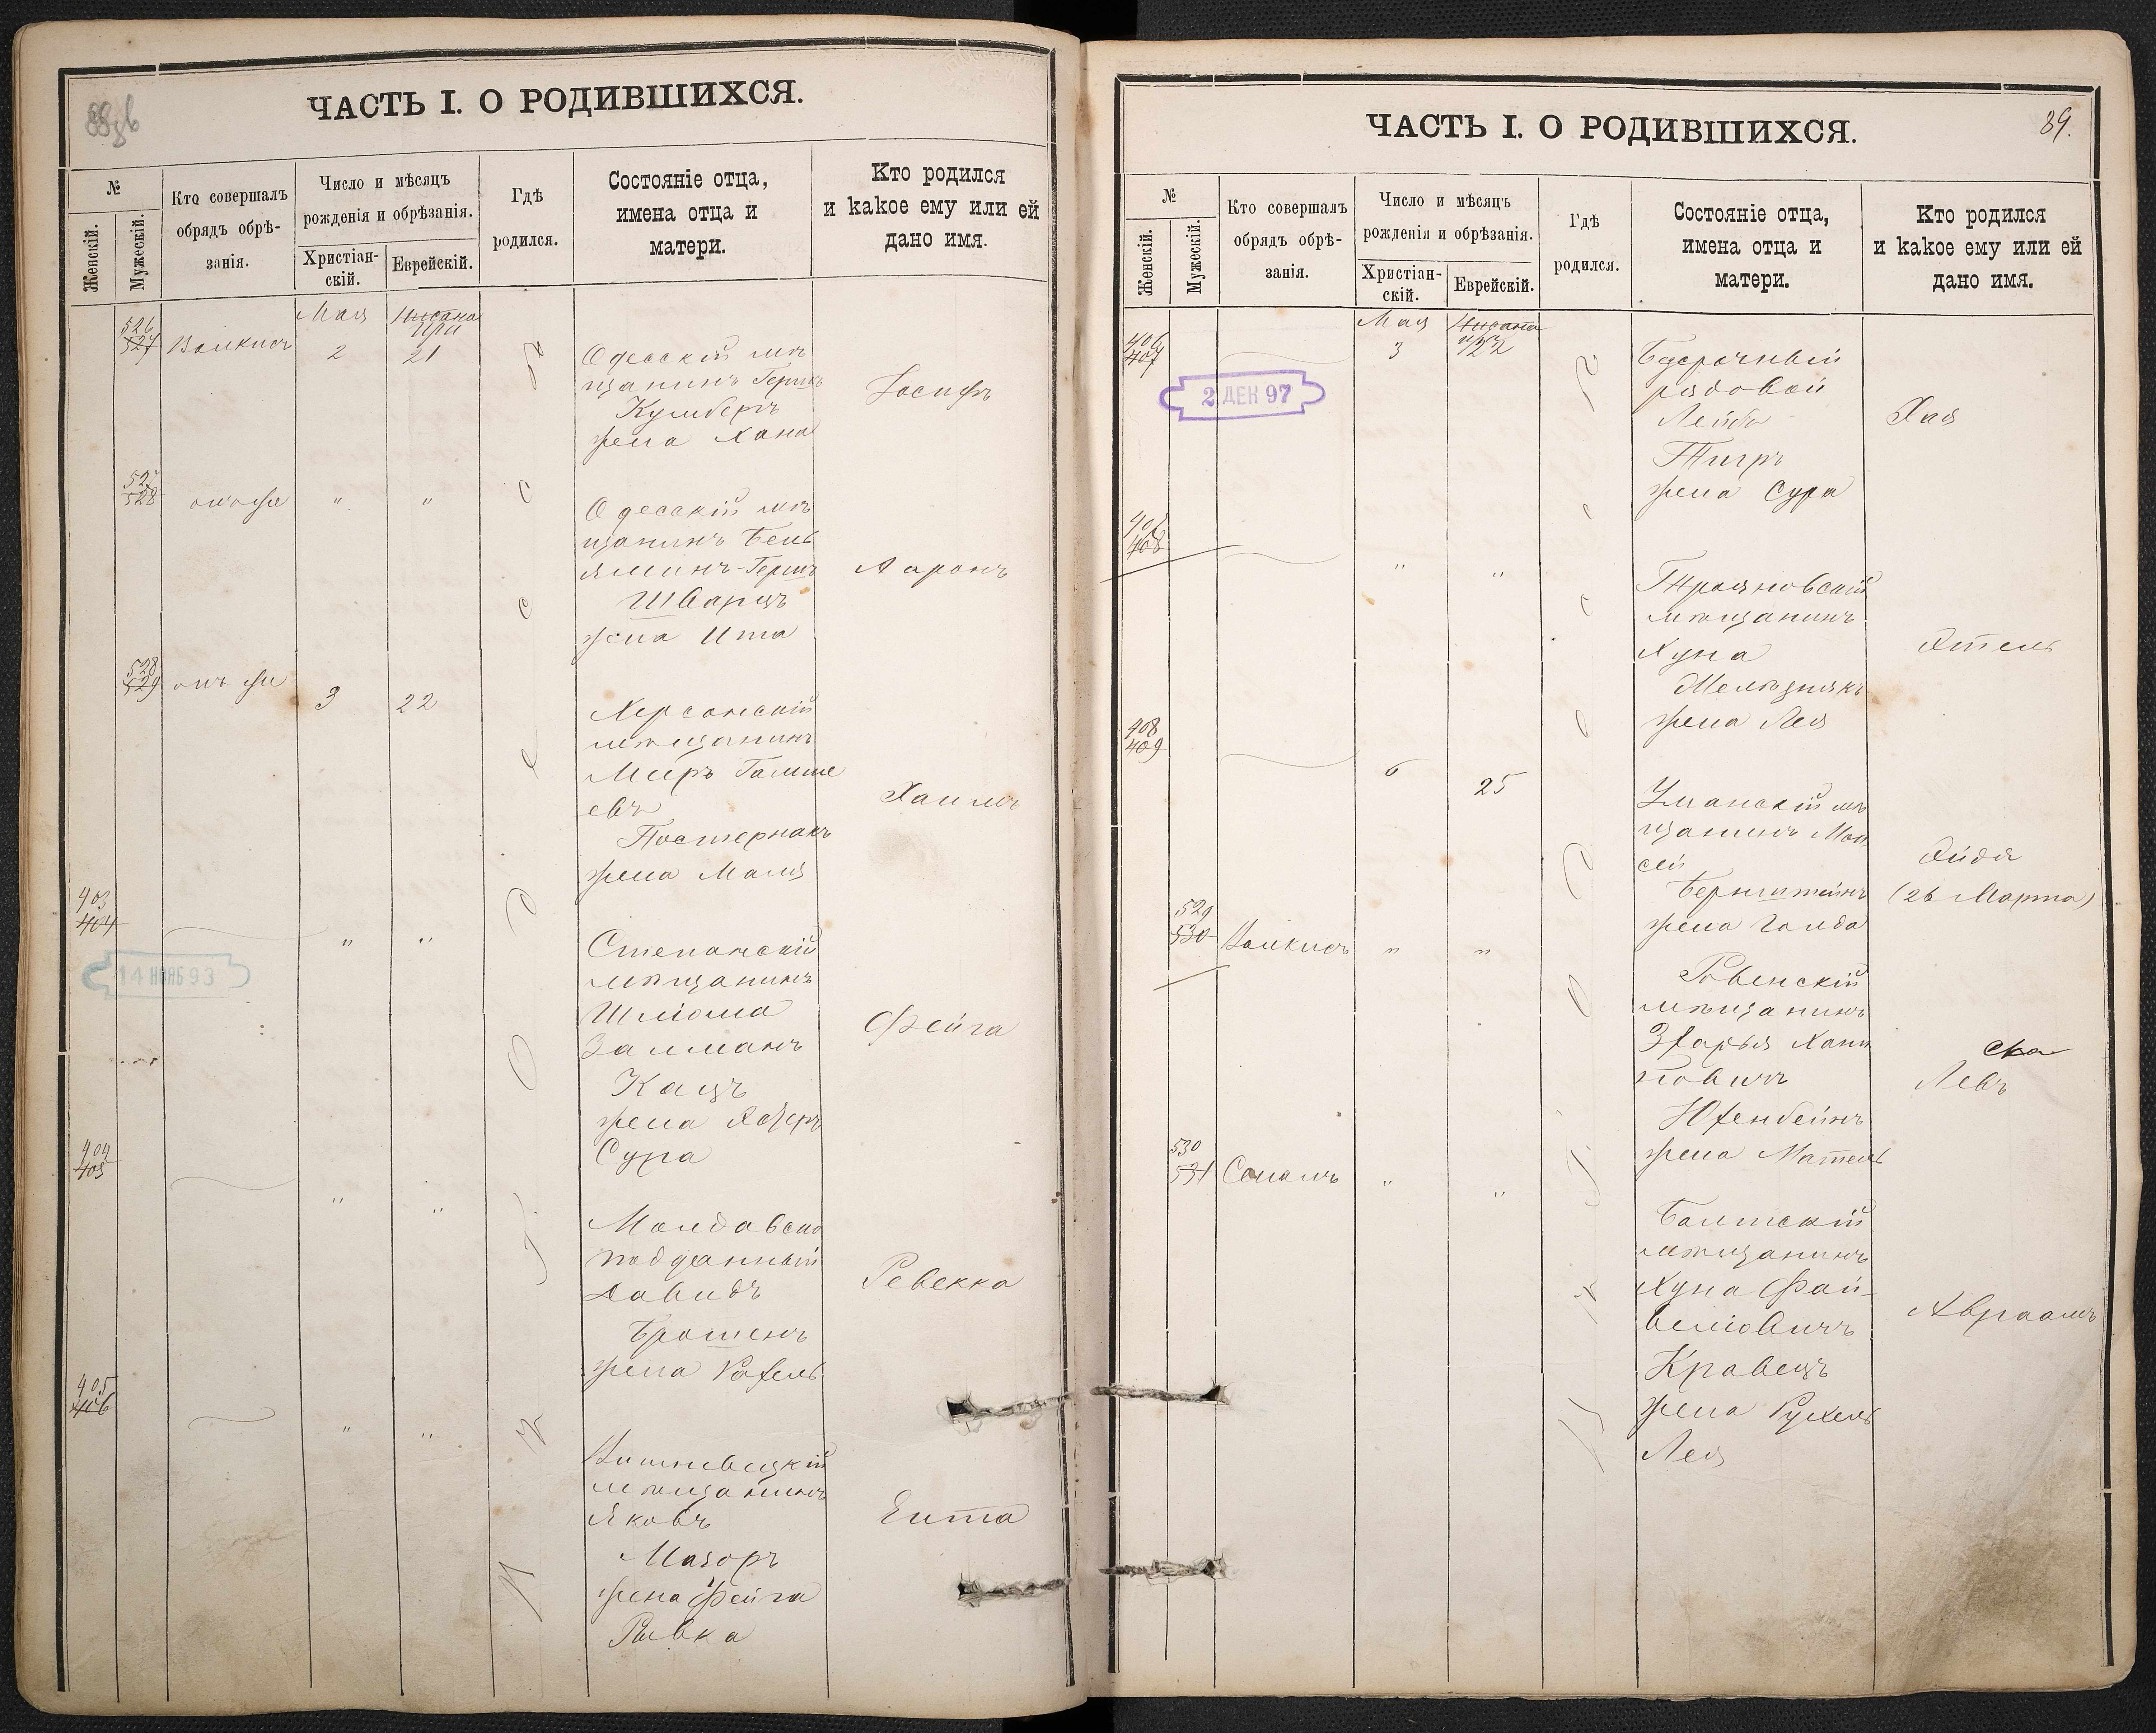 ЧАСТЬ I. О РОДИВШИХСЯ.
№
Женскій.
Мужескій.
Кто совершалъ
обрядъ обрѣ-
занія.
Число и мѣсяцъ
рожденія и обрѣзанія.
Христіан-
скій.
Еврейскій.
Гдѣ
родился.
Состояніе отца,
имена отца и
матери.
Кто родился
и какое ему или ей
дано имя.
Мая Нисана
Ира
526
527
2 21
Одесскій мѣ
щанинъ Гершъ
жена Хана
Іосифъ
527
528
онъ же " "
Одесскій мѣ
щанинъ Бень
яминъ-Гершъ
Шварцъ
жена Ита
Ааронъ
528
529
онъ же 3 22
Херсонскій
мѣщанинъ
Меиръ
евъ
Постернакъ
жена Маля
Хаимъ
403
404
" "
14 НОЯБ 93
Степанскій
мѣщанинъ
Шліома
Залманъ
Кацъ
жена
Сура
Фейга
404
405
" "
Молдавско
подданный
Давидъ
Брошенъ
жена Рахель
Ревекка
405
406
" "
Вишневецкій
мѣщанинъ
Яковъ
Мазоръ
жена Фейга
Рывка
Ента
ЧАСТЬ I. О РОДИВШИХСЯ.
89.
№
Женскій.
Мужескій.
Кто совершалъ
обрядъ обрѣ-
занія.
Число и мѣсяцъ
рожденія и обрѣзанія.
Христіан-
скій.
Еврейскій.
Гдѣ
родился.
Состояніе отца,
имена отца и
матери.
Кто родился
и какое ему или ей
дано имя.
Мая Нисана
406
407
3 22
2 ДЕК 97
Безсрочный
рядовой
Лейба
Тигръ
жена Сура
Хая
407
408
" "
Трояновскій
мѣщанинъ
Хуна
жена Лея
Этель
408
409
6 25
Уманскій мѣ
щанинъ Мои
сей
Бернштейнъ
жена Голда
Эйдя
(26 Марта)
529
530
" "
Ровенскій
мѣщанинъ
Зхарья Хаим
овичъ
Юхенбейнъ
жена Матель
Левъ
530
531
" "
Балтскій
мѣщанинъ
Хуна Фай-
веліовичъ
Кравецъ
жена Рухель
Лея
Авраамъ